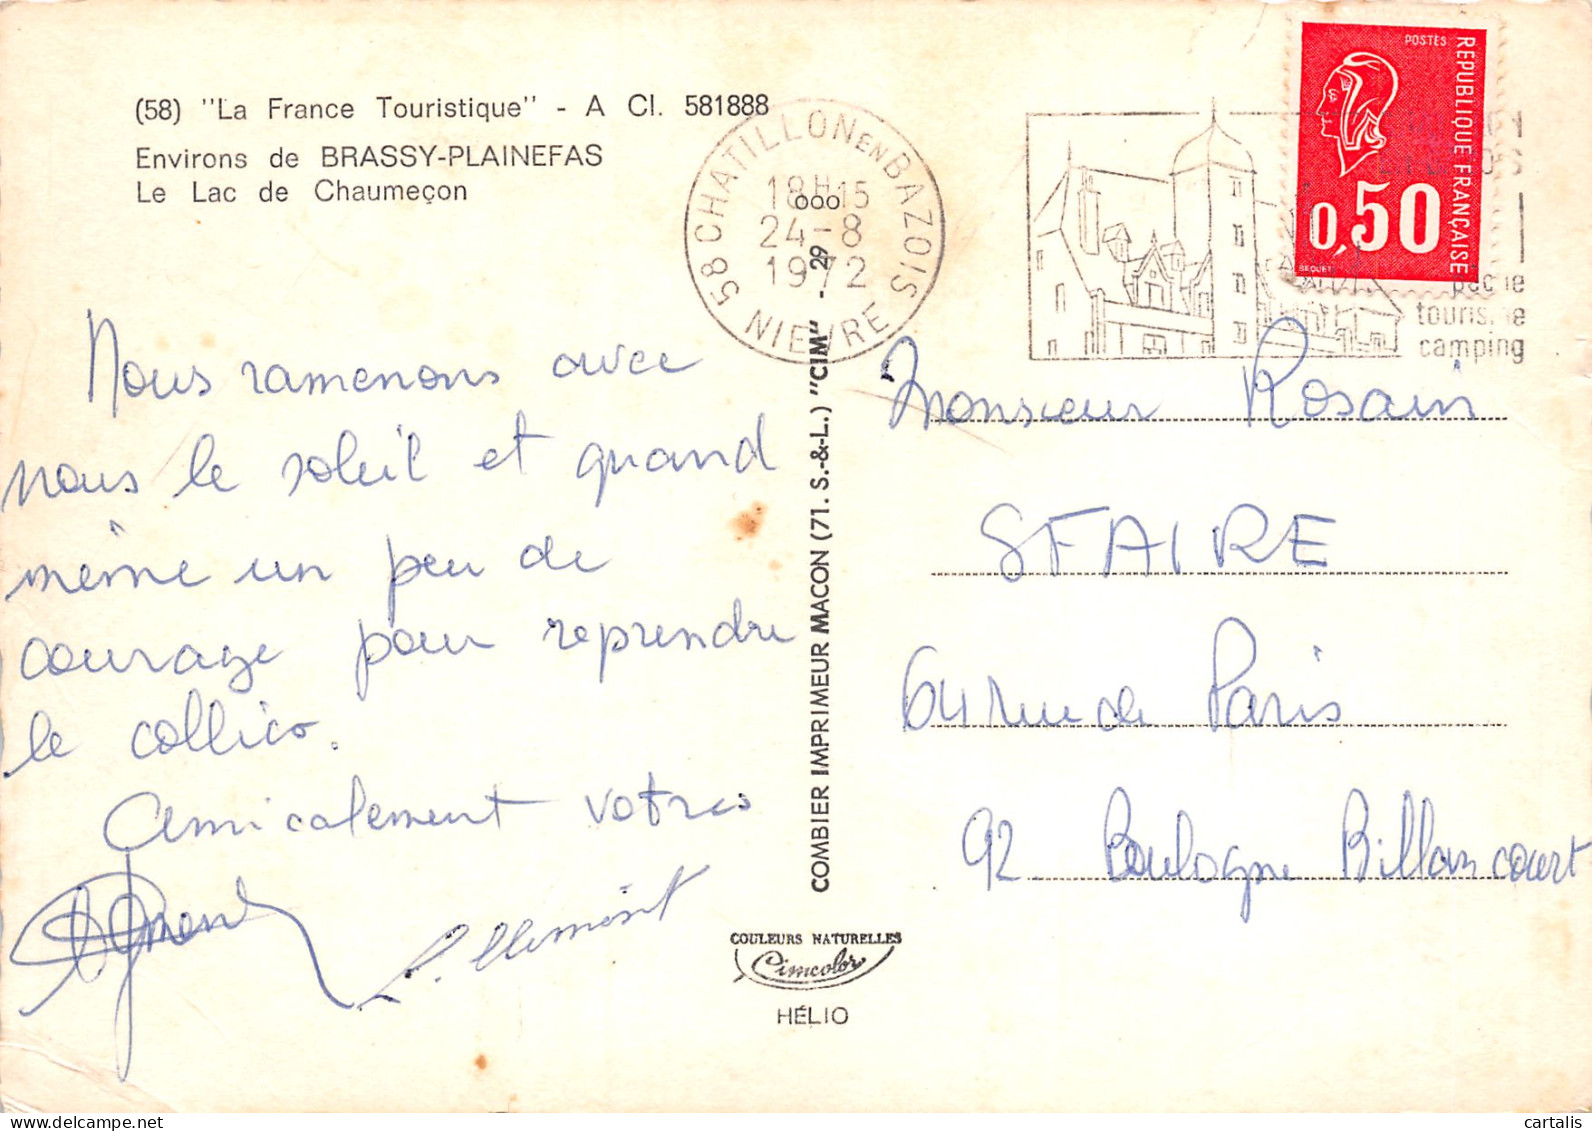 (58) "La France Touristique" - A Cl. 581888
Environs de BRASSY-PLAINEFAS
Le Lac de Chaumeçon
58 CHATILLON EN BAZOIS
18H15
24-8
1972
NIEVRE
POSTES
REPUBLIQUE FRANÇAISE
0,50
BEQUET
tourisme
camping
Nous ramenons avec
nous le soleil et quand
même un peu de
courage pour reprendre
le collico.
Amicalement votres
COMBIER IMPRIMEUR MACON (71. S.-&-L.) "CIM" - 29
COULEURS NATURELLES
Cimcolor
HÉLIO
Monsieur Rosain
SFAIRE
64 rue de Paris
92 - Boulogne Billancourt
cartalis
delcampe.net